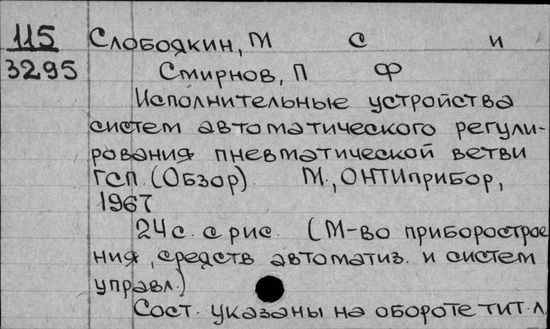 115 Слободкин, М С и
3295 Смирнов, П Ф
Исполнительные устройства
систем автоматического регули-
рования пневматической ветви
ГСП. (Обзор). М., ОНТИприбор,
1967
24 с. с рис. (М-во приборострое
ния, средств автоматиз. и систем
управл.)
Сост. указаны на обороте тит. л